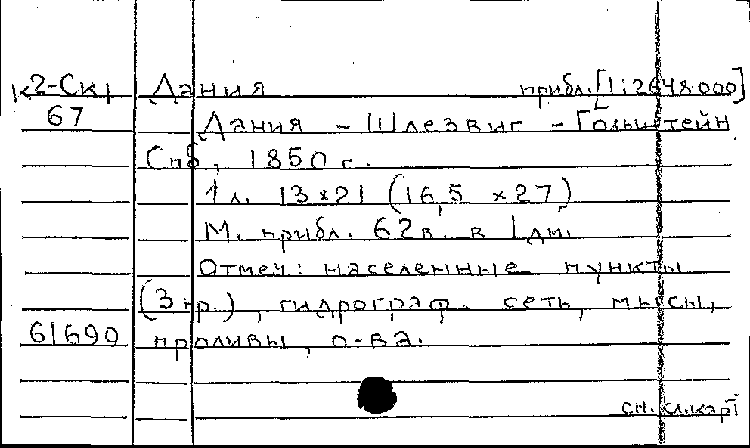 К2-Ск1 Дания прибл. [1:2648000]
67 Дания - Шлезвиг - Гольштейн
Спб, 1850 г.
1 л. 13x21 (16,5 x 27)
М. прибл. 62в. в 1 дм.
Отмеч: населенные пункты
(3 гр.), гидрограф. сеть, мысы,
61690 проливы, о-ва.